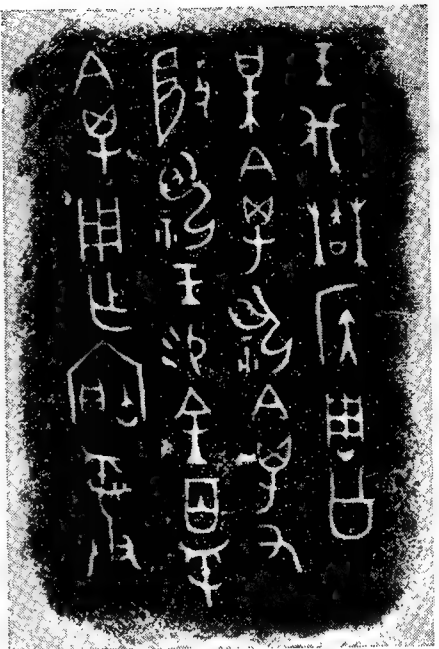 王伐蓋侯周公
某禽祝禽又
脤祝王易金百寽
禽用乍寶彝